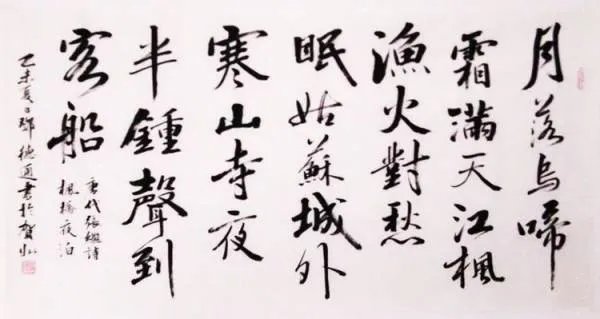 月落烏啼
霜滿天江楓
漁火對愁
眠姑蘇城外
寒山寺夜
半鍾聲到
客船
唐代張繼詩
楓橋夜泊
乙未夏日鄧德通書於